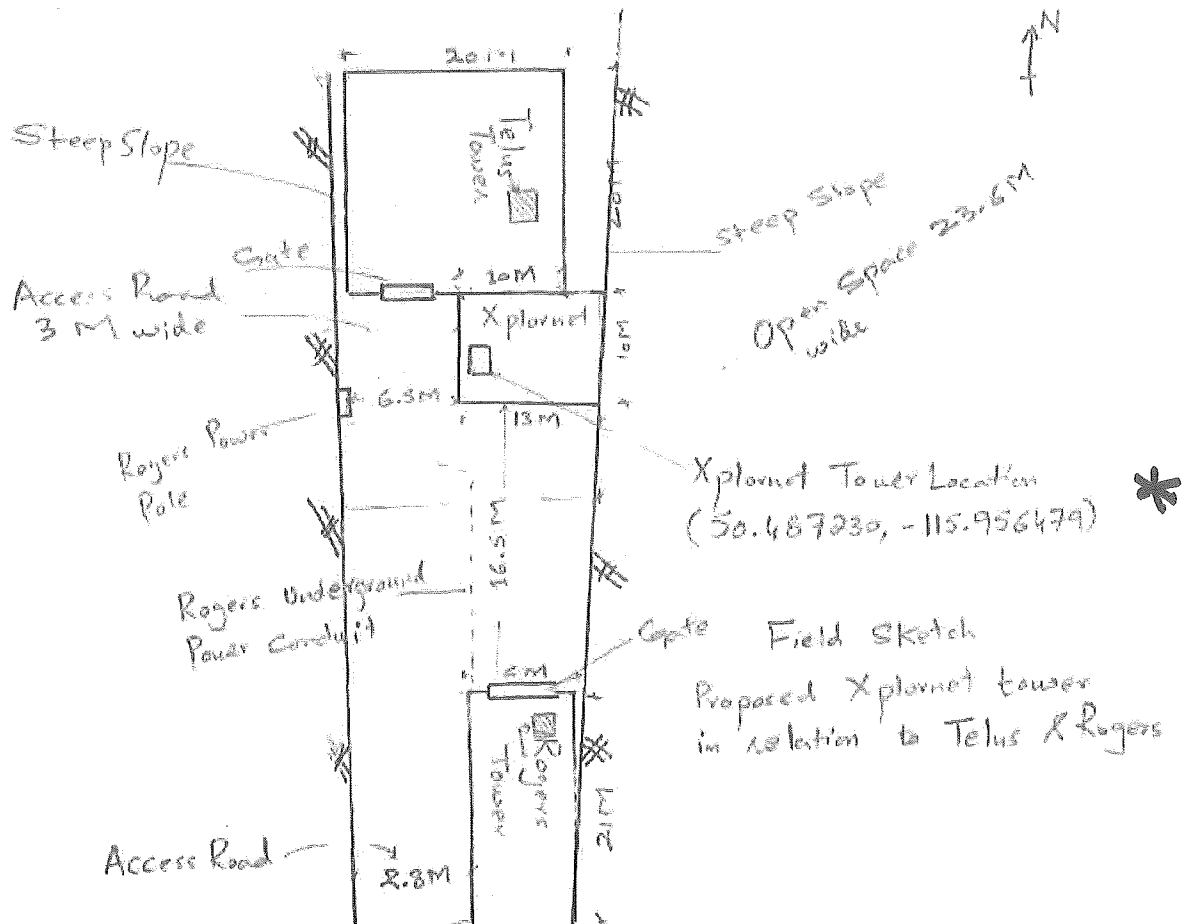 N
20M
Steep Slope
Telus
Tower
20M
Steep Slope
Gate
Access Road
3 M wide
10M
Xplornet
10M
Open Space 23.6M
wide
6.5M
13M
Rogers Power
Pole
Xplornet Tower Location
(50.487230, -115.956479)
*
16.5M
Rogers Underground
Power Conduit
Gate
Field Sketch
Proposed Xplornet tower
in relation to Telus & Rogers
Rogers
Tower
21M
Access Road
2.8M